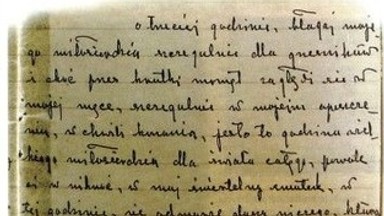 o trzeciej godzinie, błagaj moje-
go miłosierdzia szczególnie dla grzeszników
i choć przez krótki moment zagłęb się w
mojej męce, szczególnie w mojem opuszcze-
niu, w chwili konania, jest to godzina wiel-
kiego miłosierdzia dla świata całego, pozwolę
ci wniknąć w mój śmiertelny smutek, w
tej godzinie nie odmówię duszy niczego, która